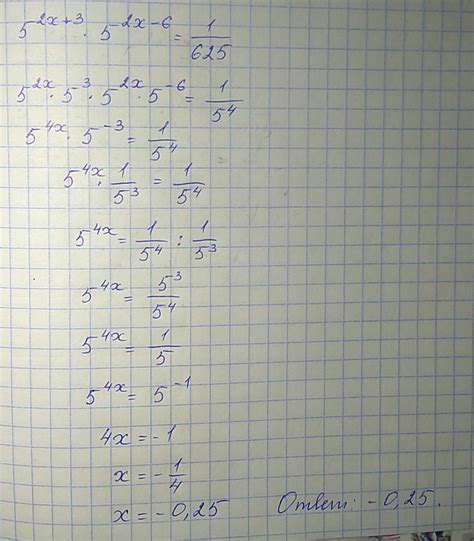 5^{2x+3} · 5^{2x-6} = 1/625
5^{2x} · 5^3 · 5^{2x} · 5^{-6} = 1/5^4
5^{4x} · 5^{-3} = 1/5^4
5^{4x} · 1/5^3 = 1/5^4
5^{4x} = 1/5^4 : 1/5^3
5^{4x} = 5^{-3}/5^4
5^{4x} = 1/5
5^{4x} = 5^{-1}
4x = -1
x = -1/4
x = -0,25 Ответ: -0,25.